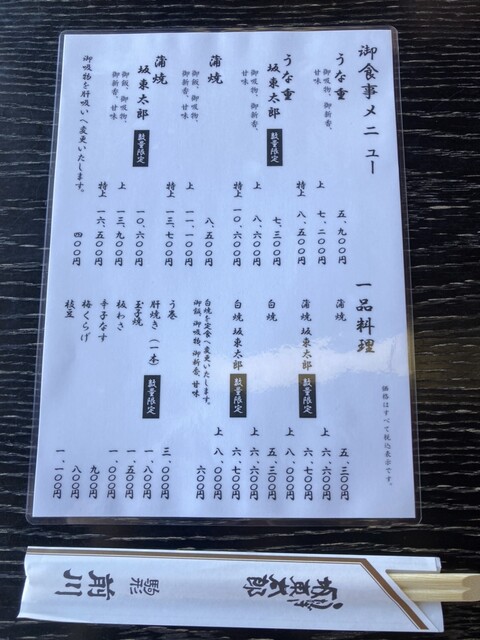 御食事メニュー
うな重
御吸物、御新香、甘味
五、九〇〇円
上 七、二〇〇円
特上 八、五〇〇円
うな重 坂東太郎 数量限定
御吸物、御新香、甘味
七、三〇〇円
上 八、六〇〇円
特上 一〇、六〇〇円
蒲焼
御飯、御吸物、御新香、甘味
八、五〇〇円
上 一一、一〇〇円
特上 一三、七〇〇円
蒲焼 坂東太郎 数量限定
御飯、御吸物、御新香、甘味
一〇、六〇〇円
上 一三、九〇〇円
特上 一六、五〇〇円
御吸物を肝吸いへ変更いたします。 四〇〇円
一品料理
価格はすべて税込表示です。
蒲焼 五、三〇〇円
上 六、六〇〇円
蒲焼 坂東太郎 数量限定 六、七〇〇円
上 八、〇〇〇円
白焼 五、三〇〇円
上 六、六〇〇円
白焼 坂東太郎 数量限定 六、七〇〇円
上 八、〇〇〇円
白焼を定食へ変更いたします。
御飯、御吸物、御新香、甘味 六〇〇円
う巻 三、〇〇〇円
肝焼き（一本） 数量限定 一、八〇〇円
玉子焼 一、五〇〇円
板わさ 一、〇〇〇円
辛子なす 九〇〇円
梅くらげ 八〇〇円
枝豆 一、一〇〇円
駒形 前川
坂東太郎